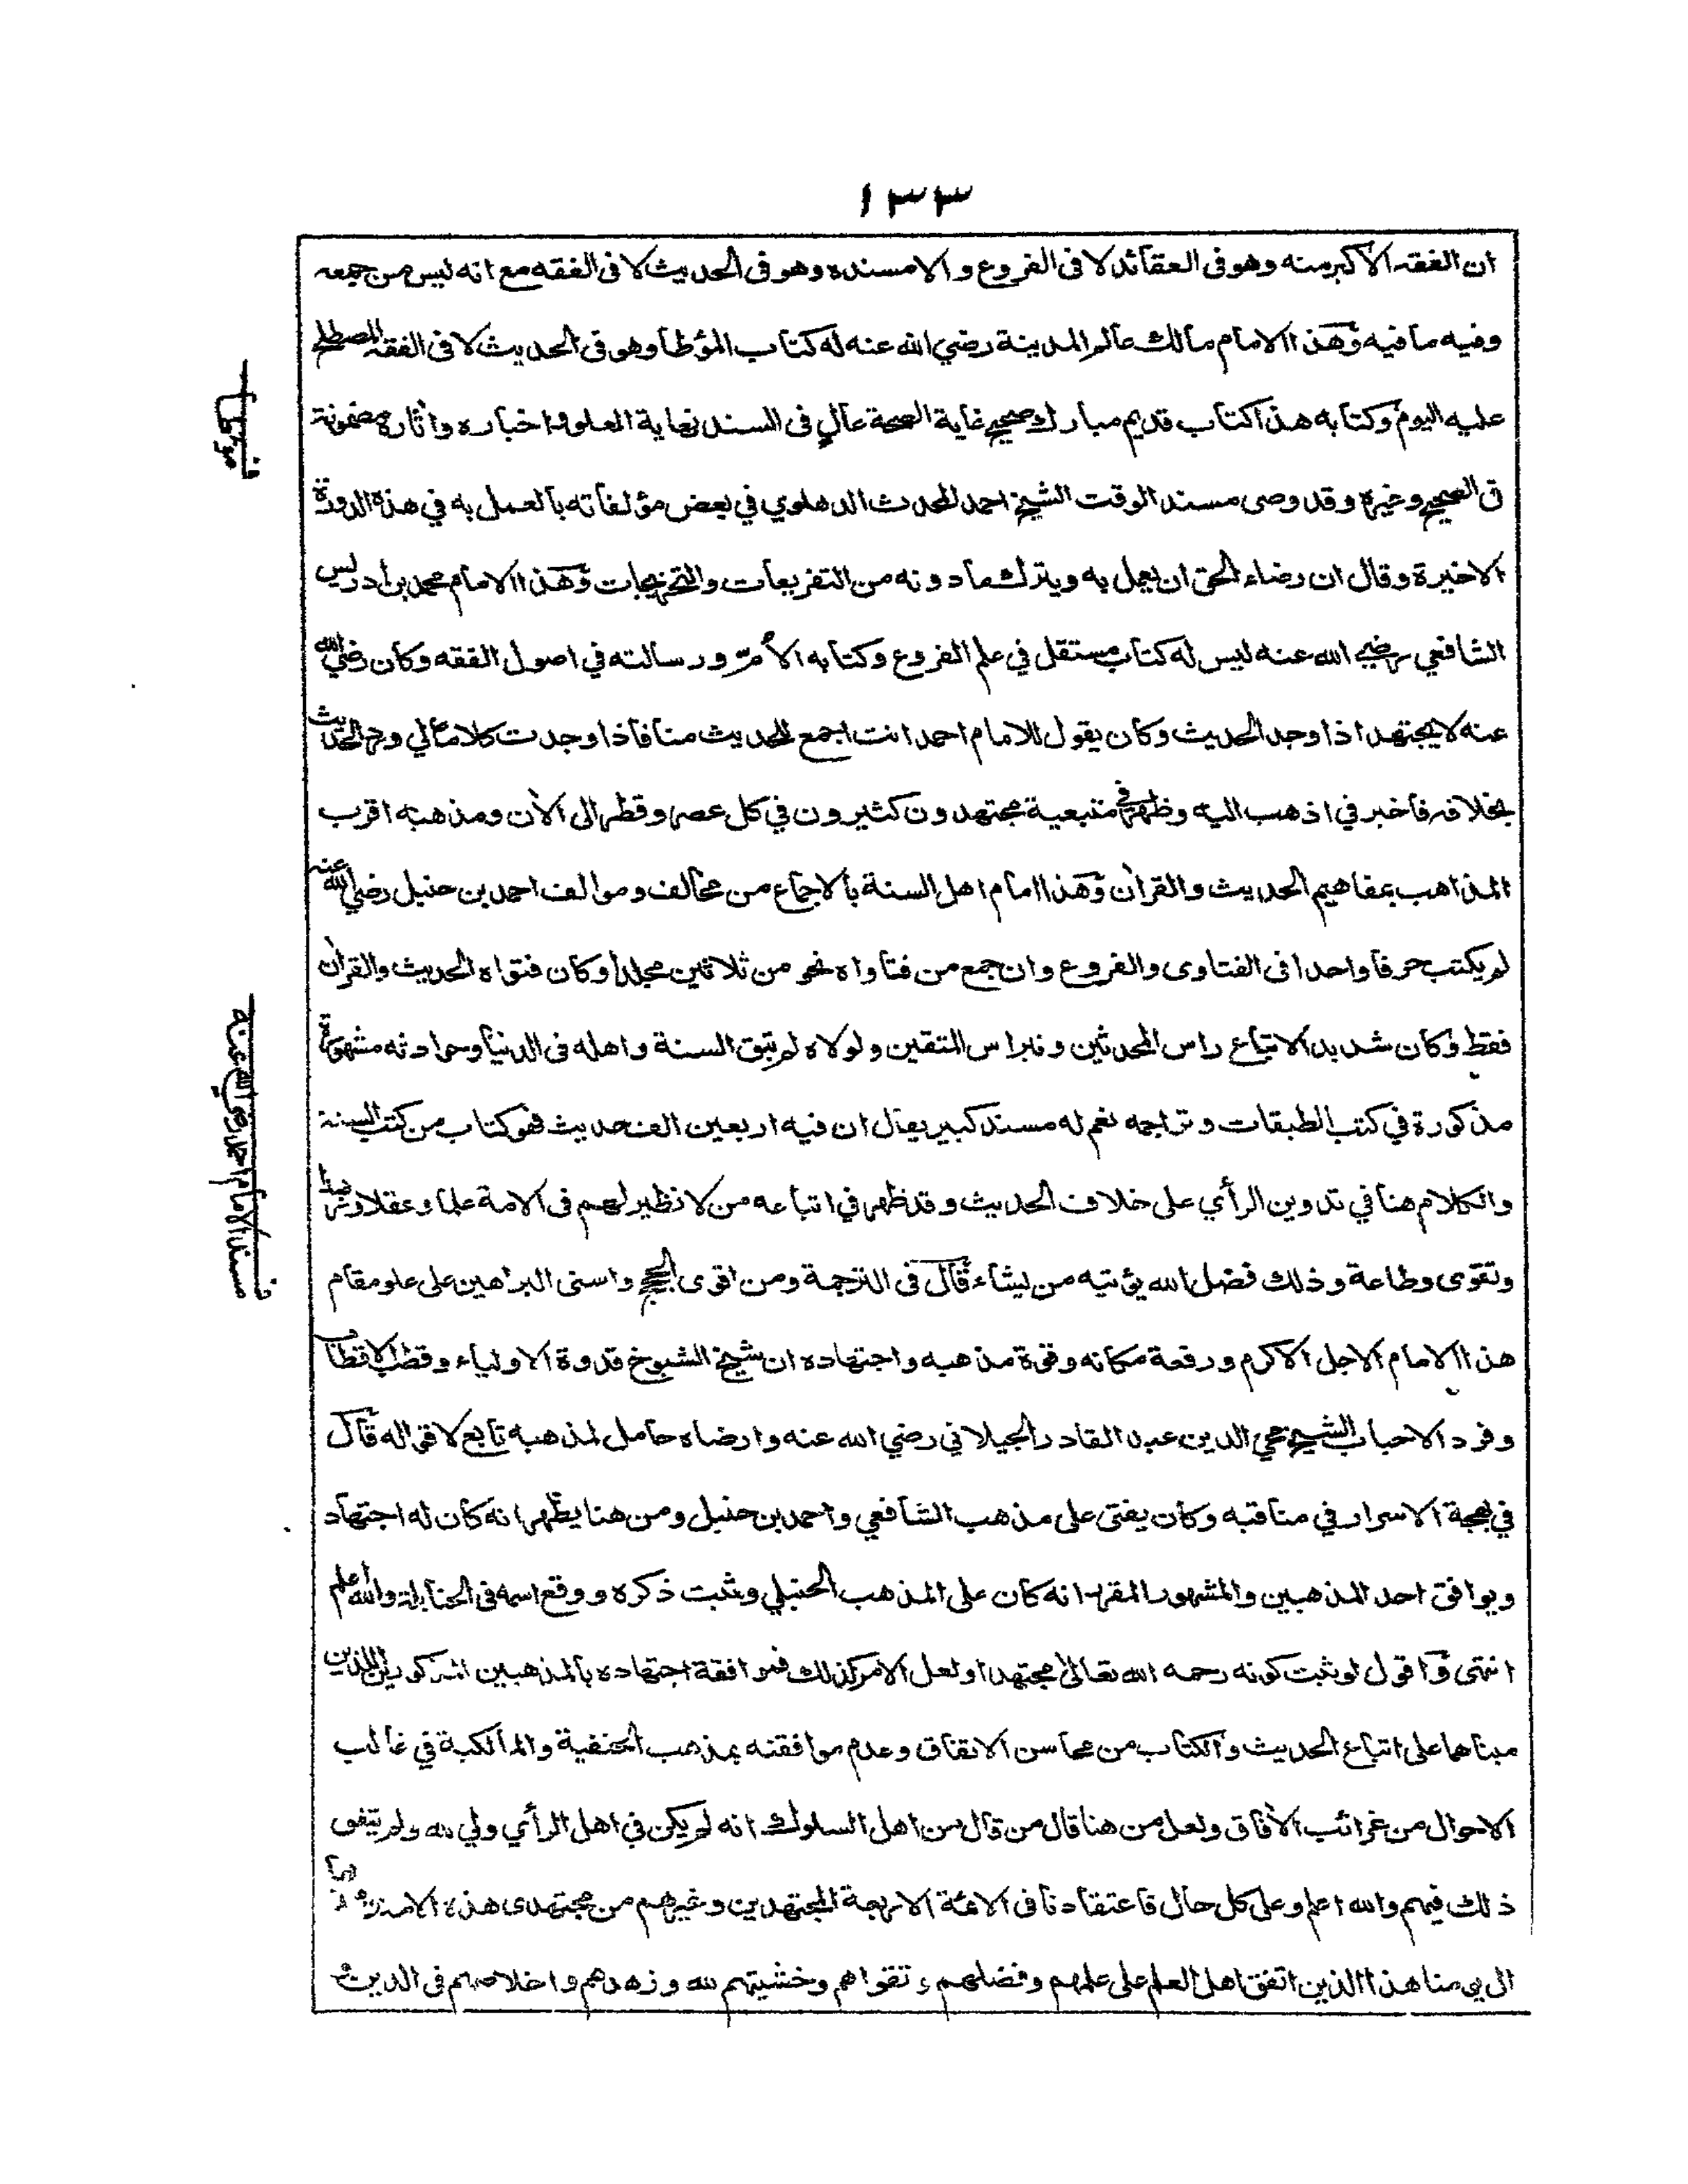 ١٣٣
ان الفقه الأكبر منه وهو فى العقائد لا فى الفروع والا مسنده وهو فى الحديث لا فى الفقه مع انه ليس من جمعه
وفيه ما فيه وهذا الامام مالك عالم المدينة رضي الله عنه له كتاب المؤطا وهو فى الحديث لا فى الفقه المصطلح
عليه اليوم وكتابه هذا كتاب قديم مبارك صحيح غاية الصحة عالٍ فى السند نهاية العلو واخباره وأثاره مضمونة
فى الصحيح وغيره وقد وصى مسند الوقت الشيخ احمد المحدث الدهلوي في بعض مؤلفاته بالعمل به في هذه الدورة
الاخيرة وقال ان رضاء الحق ان يعمل به ويترك ما دونه من التفريعات والتخريجات وهذا الامام محمد بن ادريس
الشافعي رضي الله عنه ليس له كتاب مستقل في علم الفروع وكتابه الأم ورسالته في اصول الفقه وكان رضي الله
عنه لا يجتهد اذا وجد الحديث وكان يقول للامام احمد انت اجمع للحديث منا فاذا وجدت كلاما لي وجر الحديث
بخلافه فأخبرني اذهب اليه وظهر في متبعيه مجتهدون كثيرون في كل عصر وقطر الى الأن ومذهبه اقرب
المذاهب بمفاهيم الحديث والقرأن وهذا امام اهل السنة بالاجماع من مخالف وموالف احمد بن حنبل رضي الله عنه
لم يكتب حرفا واحدا فى الفتاوى والفروع وان جمع من فتاواه نحو من ثلاثين مجلدا وكان فتواه الحديث والقرأن
فقط وكان شديد الاتباع راس المحدثين ونبراس المتقين ولولاه لم تبق السنة واهله فى الدنيا وحوادثه مشهورة
مذكورة في كتب الطبقات وتراجمه نعم له مسند كبير يقال ان فيه اربعين الف حديث فهو كتاب من كتب السنة
والكلام هنا في تدوين الرأي على خلاف الحديث وقد ظهر في اتباعه من لا نظير لهم فى الامة علما وعقلا وزهدا
وتقوى وطاعة وذلك فضل الله يؤتيه من يشاء قال فى الترجمة ومن اقوى الحجج واسنى البراهين على علو مقام
هذا الامام الاجل الاكرم ورفعة مكانه وقوة مذهبه واجتهاده ان شيخ الشيوخ قدوة الاولياء وقطب الاقطاب
وفرد الاحباب الشيخ محي الدين عبد القادر الجيلاني رضي الله عنه وارضاه حامل لمذهبه تابع لاقواله قال
في بهجة الاسرار في مناقبه وكان يفتى على مذهب الشافعي واحمد بن حنبل ومن هنا يظهر انه كان له اجتهاد
ويوافق احد المذهبين والمشهور المقرر انه كان على المذهب الحنبلي وثبت ذكره ووقع اسمه فى الحنابلة والله اعلم
انتهى واقول لو ثبت كونه رحمه الله تعالى مجتهدا ولعل الامر كذلك فموافقة اجتهاده بالمذهبين المذكورين اللذين
مبناهما على اتباع الحديث والكتاب من محاسن الاتفاق وعدم موافقته بمذهب الحنفية والمالكية في غالب
الاحوال من غرائب الأفاق ولعل من هنا قال من قال من اهل السلوك انه لم يكن في اهل الرأي ولي لله ولم يتفق
ذلك فيهم والله اعلم وعلى كل حال فاعتقادنا فى الائمة الاربعة المجتهدين وغيرهم من مجتهدى هذه الامة
الى يومنا هذا الذين اتفق اهل العلم على علمهم وفضلهم وتقواهم وخشيتهم لله وزهدهم واخلاصهم فى الدين
ف مؤطا
ف مسند الامام احمد رضي الله عنه